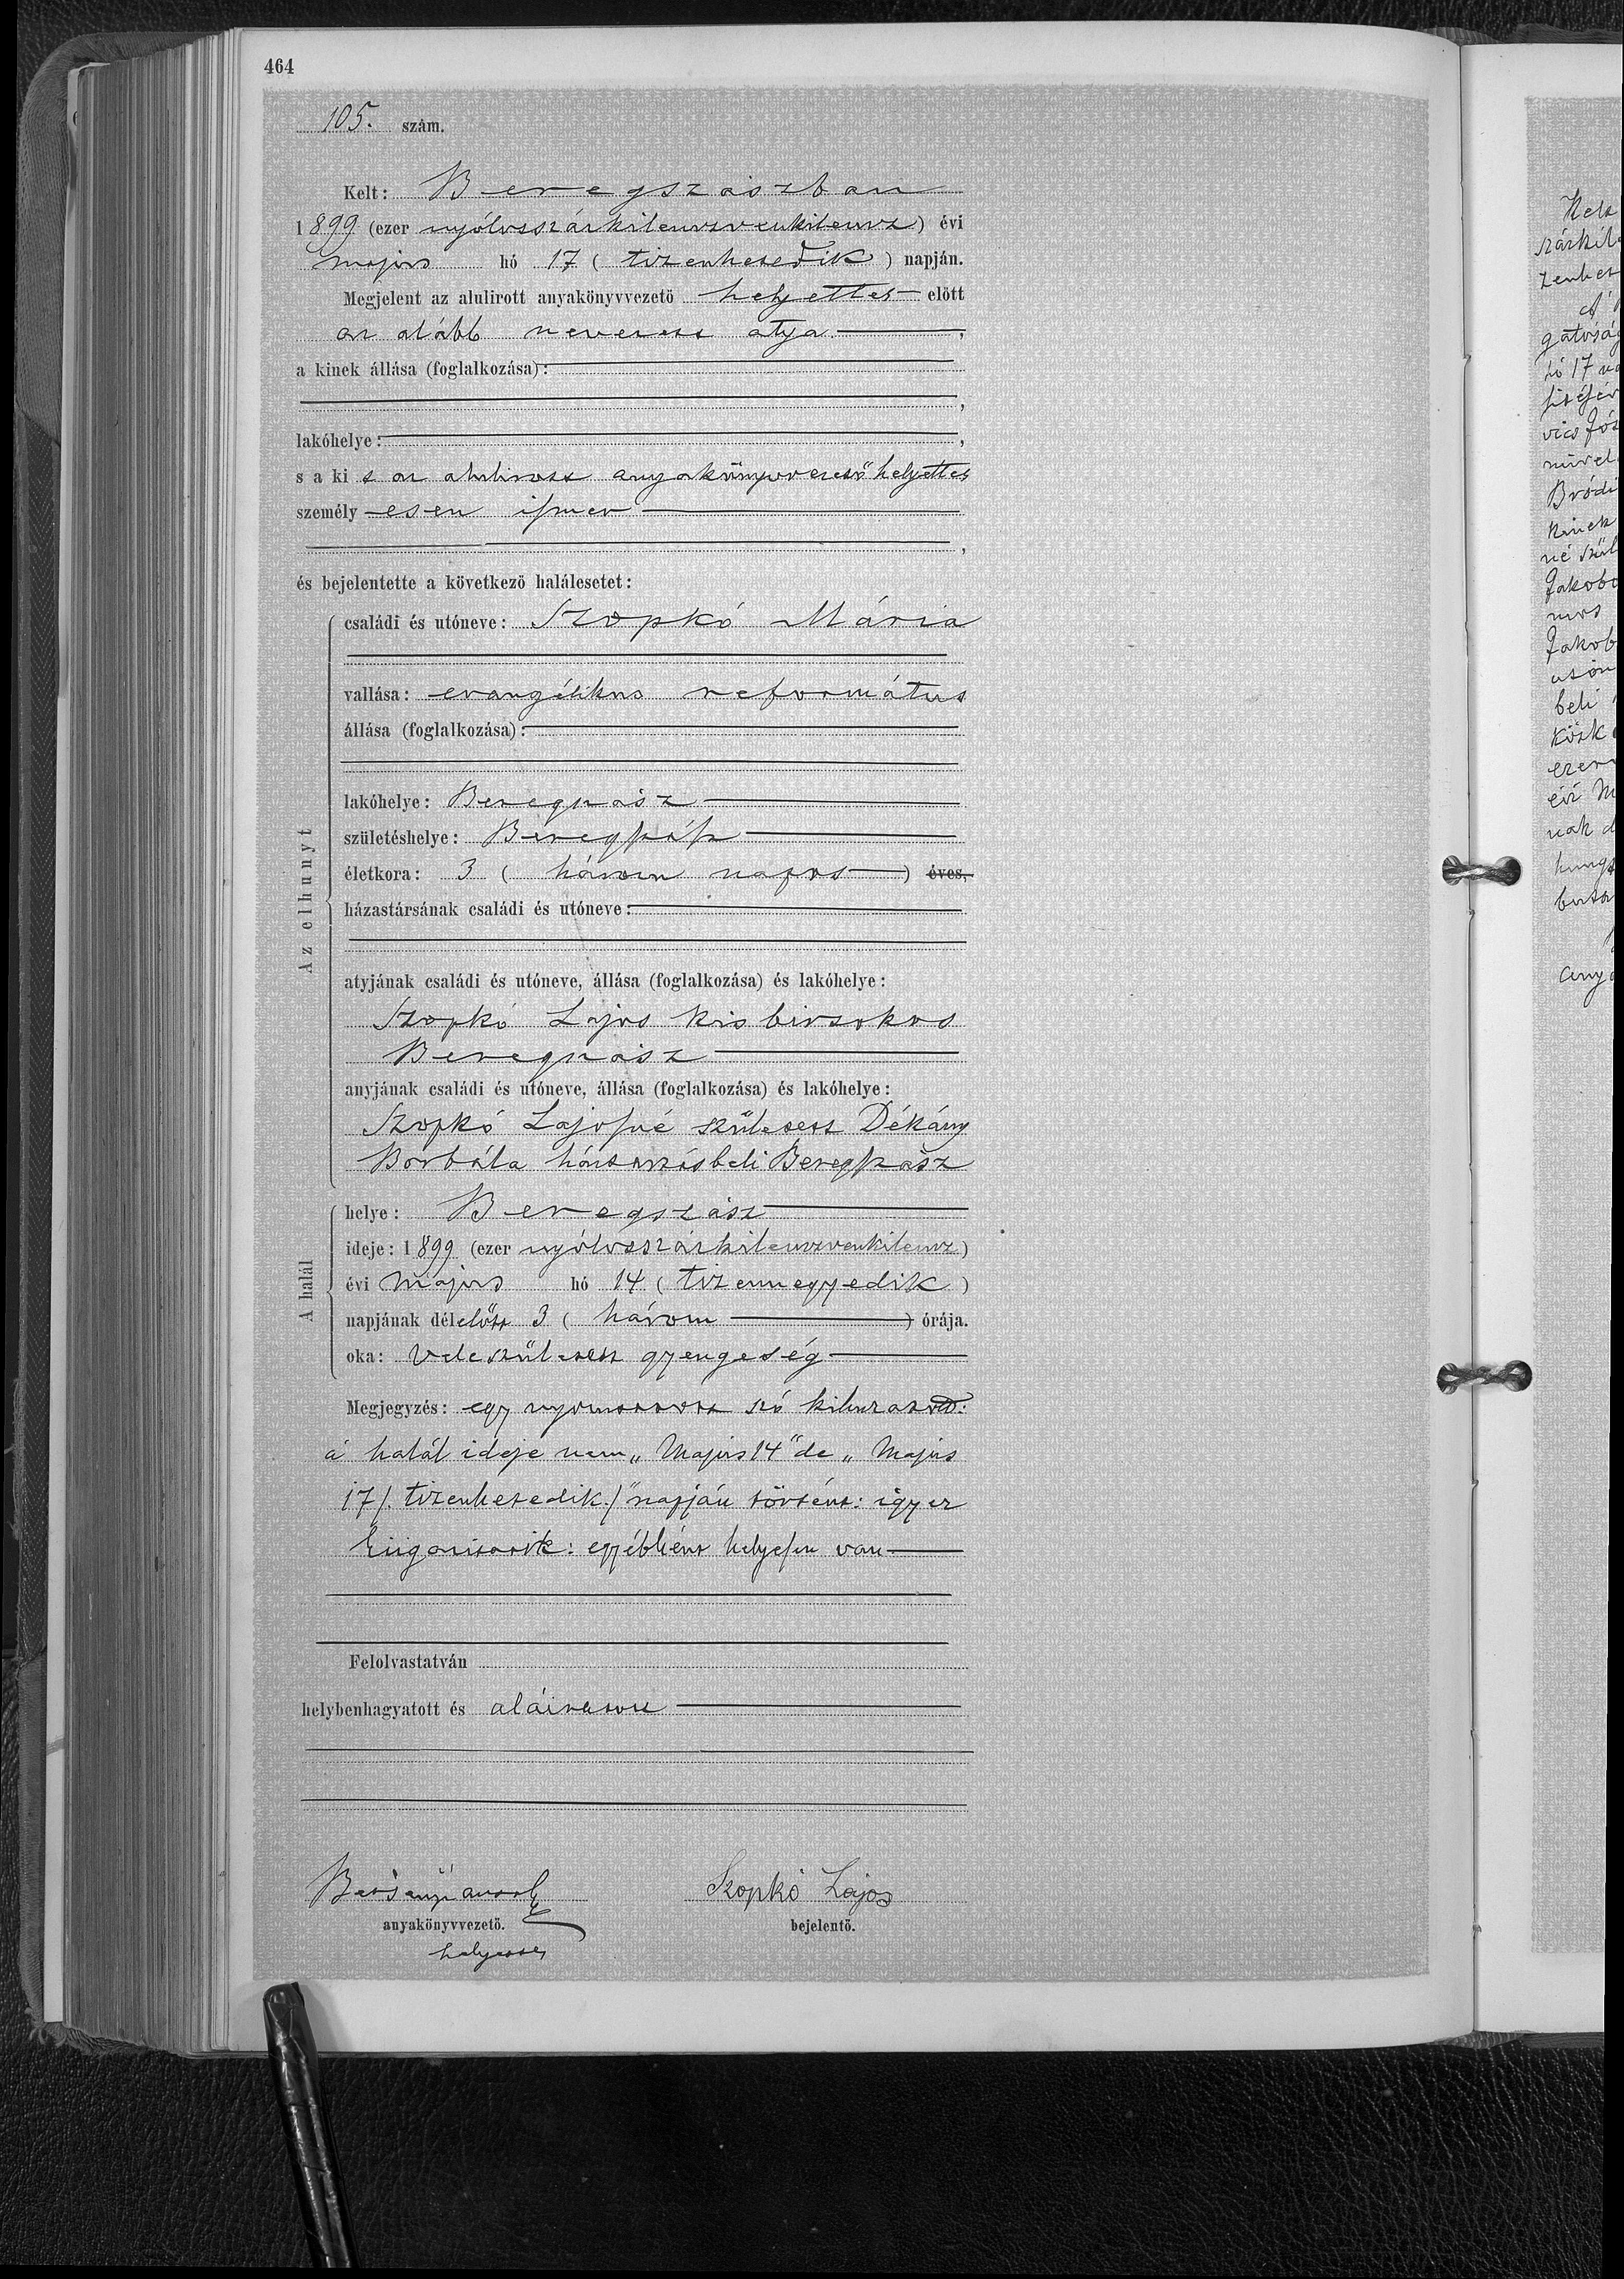 464
105. szám.
Kelt: Beregszászban
1899 (ezer nyólcszázkilenczvenkilencz) évi
majus hó 17 (tizenhetedik) napján.
Megjelent az alulirott anyakönyvvezető helyettes előtt
az alább nevezett atya.
a kinek állása (foglalkozása):
lakóhelye:
s a ki t az alulirott anyakönyvvezető helyettes
személyesen ismer
és bejelentette a következő halálesetet:
Az elhunyt
családi és utóneve: Szopkó Mária
vallása: evangélikus református
állása (foglalkozása):
lakóhelye: Beregszász
születéshelye: Beregszász
életkora: 3 (három napos) éves,
házastársának családi és utóneve:
atyjának családi és utóneve, állása (foglalkozása) és lakóhelye:
Szopkó Lajos kisbirtokos
Beregszász
anyjának családi és utóneve, állása (foglalkozása) és lakóhelye:
Szopkó Lajosné született Dékány
Borbála háztartásbeli Beregszász
A halál
helye: Beregszász
ideje: 1899 (ezer nyólcszázkilenczvenkilencz)
évi majus hó 14 (tizennegyedik)
napjának délelőtt 3 (három) órája.
oka: Veleszületett gyengeség
Megjegyzés: egy nyomtatott szó kihuzatott:
a halál ideje nem „Majus 14" de „Majus
17 /. tizenhetedik./" napján történt: igy ez
kiigazittatik: egyébként helyesen van
Felolvastatván
helybenhagyatott és aláiratott
Szopkó Lajos
anyakönyvvezető. bejelentő.
helyettes
Kelt
zenhet
gatóság
hó 17 na
vics Józ
Bródi
kinek
né szül
Jakob
beli
ezer
évi
nak